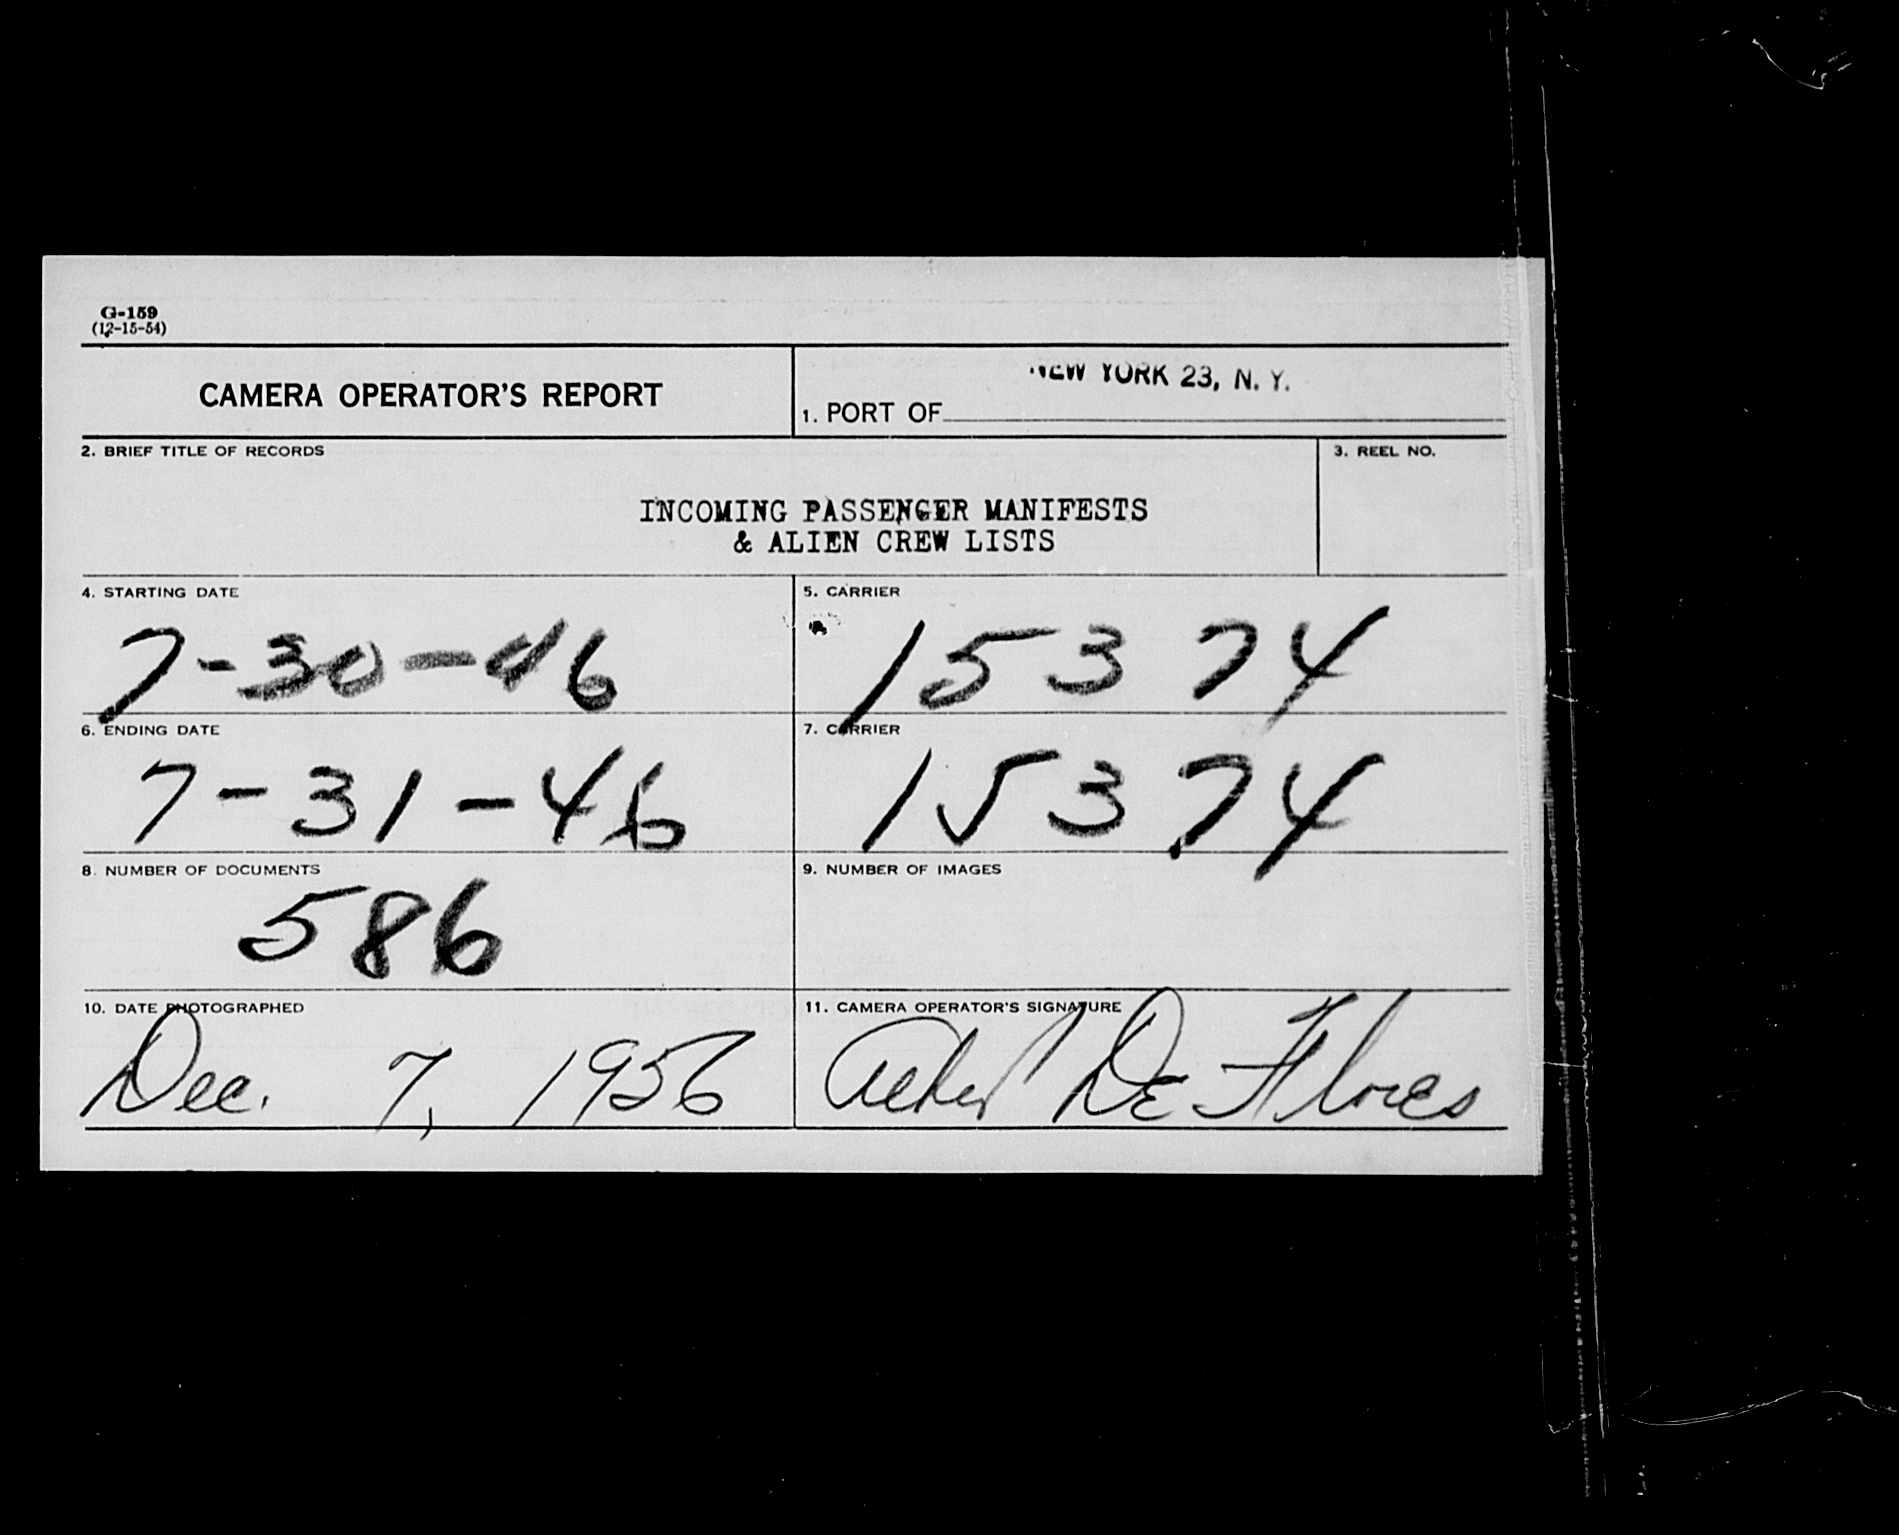 G-159
(12-15-54)
CAMERA OPERATOR'S REPORT
NEW YORK 23, N. Y.
1. PORT OF
2. BRIEF TITLE OF RECORDS
3. REEL NO.
INCOMING PASSENGER MANIFESTS
& ALIEN CREW LISTS
4. STARTING DATE
7-30-46
5. CARRIER
15374
6. ENDING DATE
7-31-46
7. CARRIER
15374
8. NUMBER OF DOCUMENTS
586
9. NUMBER OF IMAGES
10. DATE PHOTOGRAPHED
Dec. 7, 1956
11. CAMERA OPERATOR'S SIGNATURE
De Flores